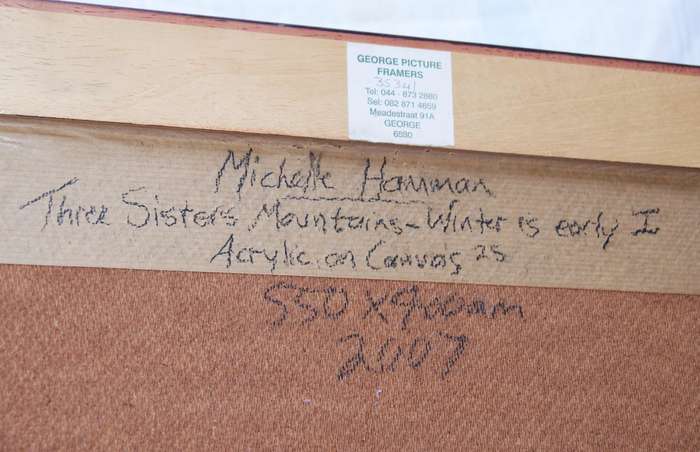 GEORGE PICTURE
FRAMERS
35341
Tel: 044 - 873 2880
Sel: 082 871 4659
Meadestraat 91A
GEORGE
6530
Michelle Hamman
Three Sisters Mountains - Winter is early I
Acrylic on Canvas 25
550 x 900mm
2007